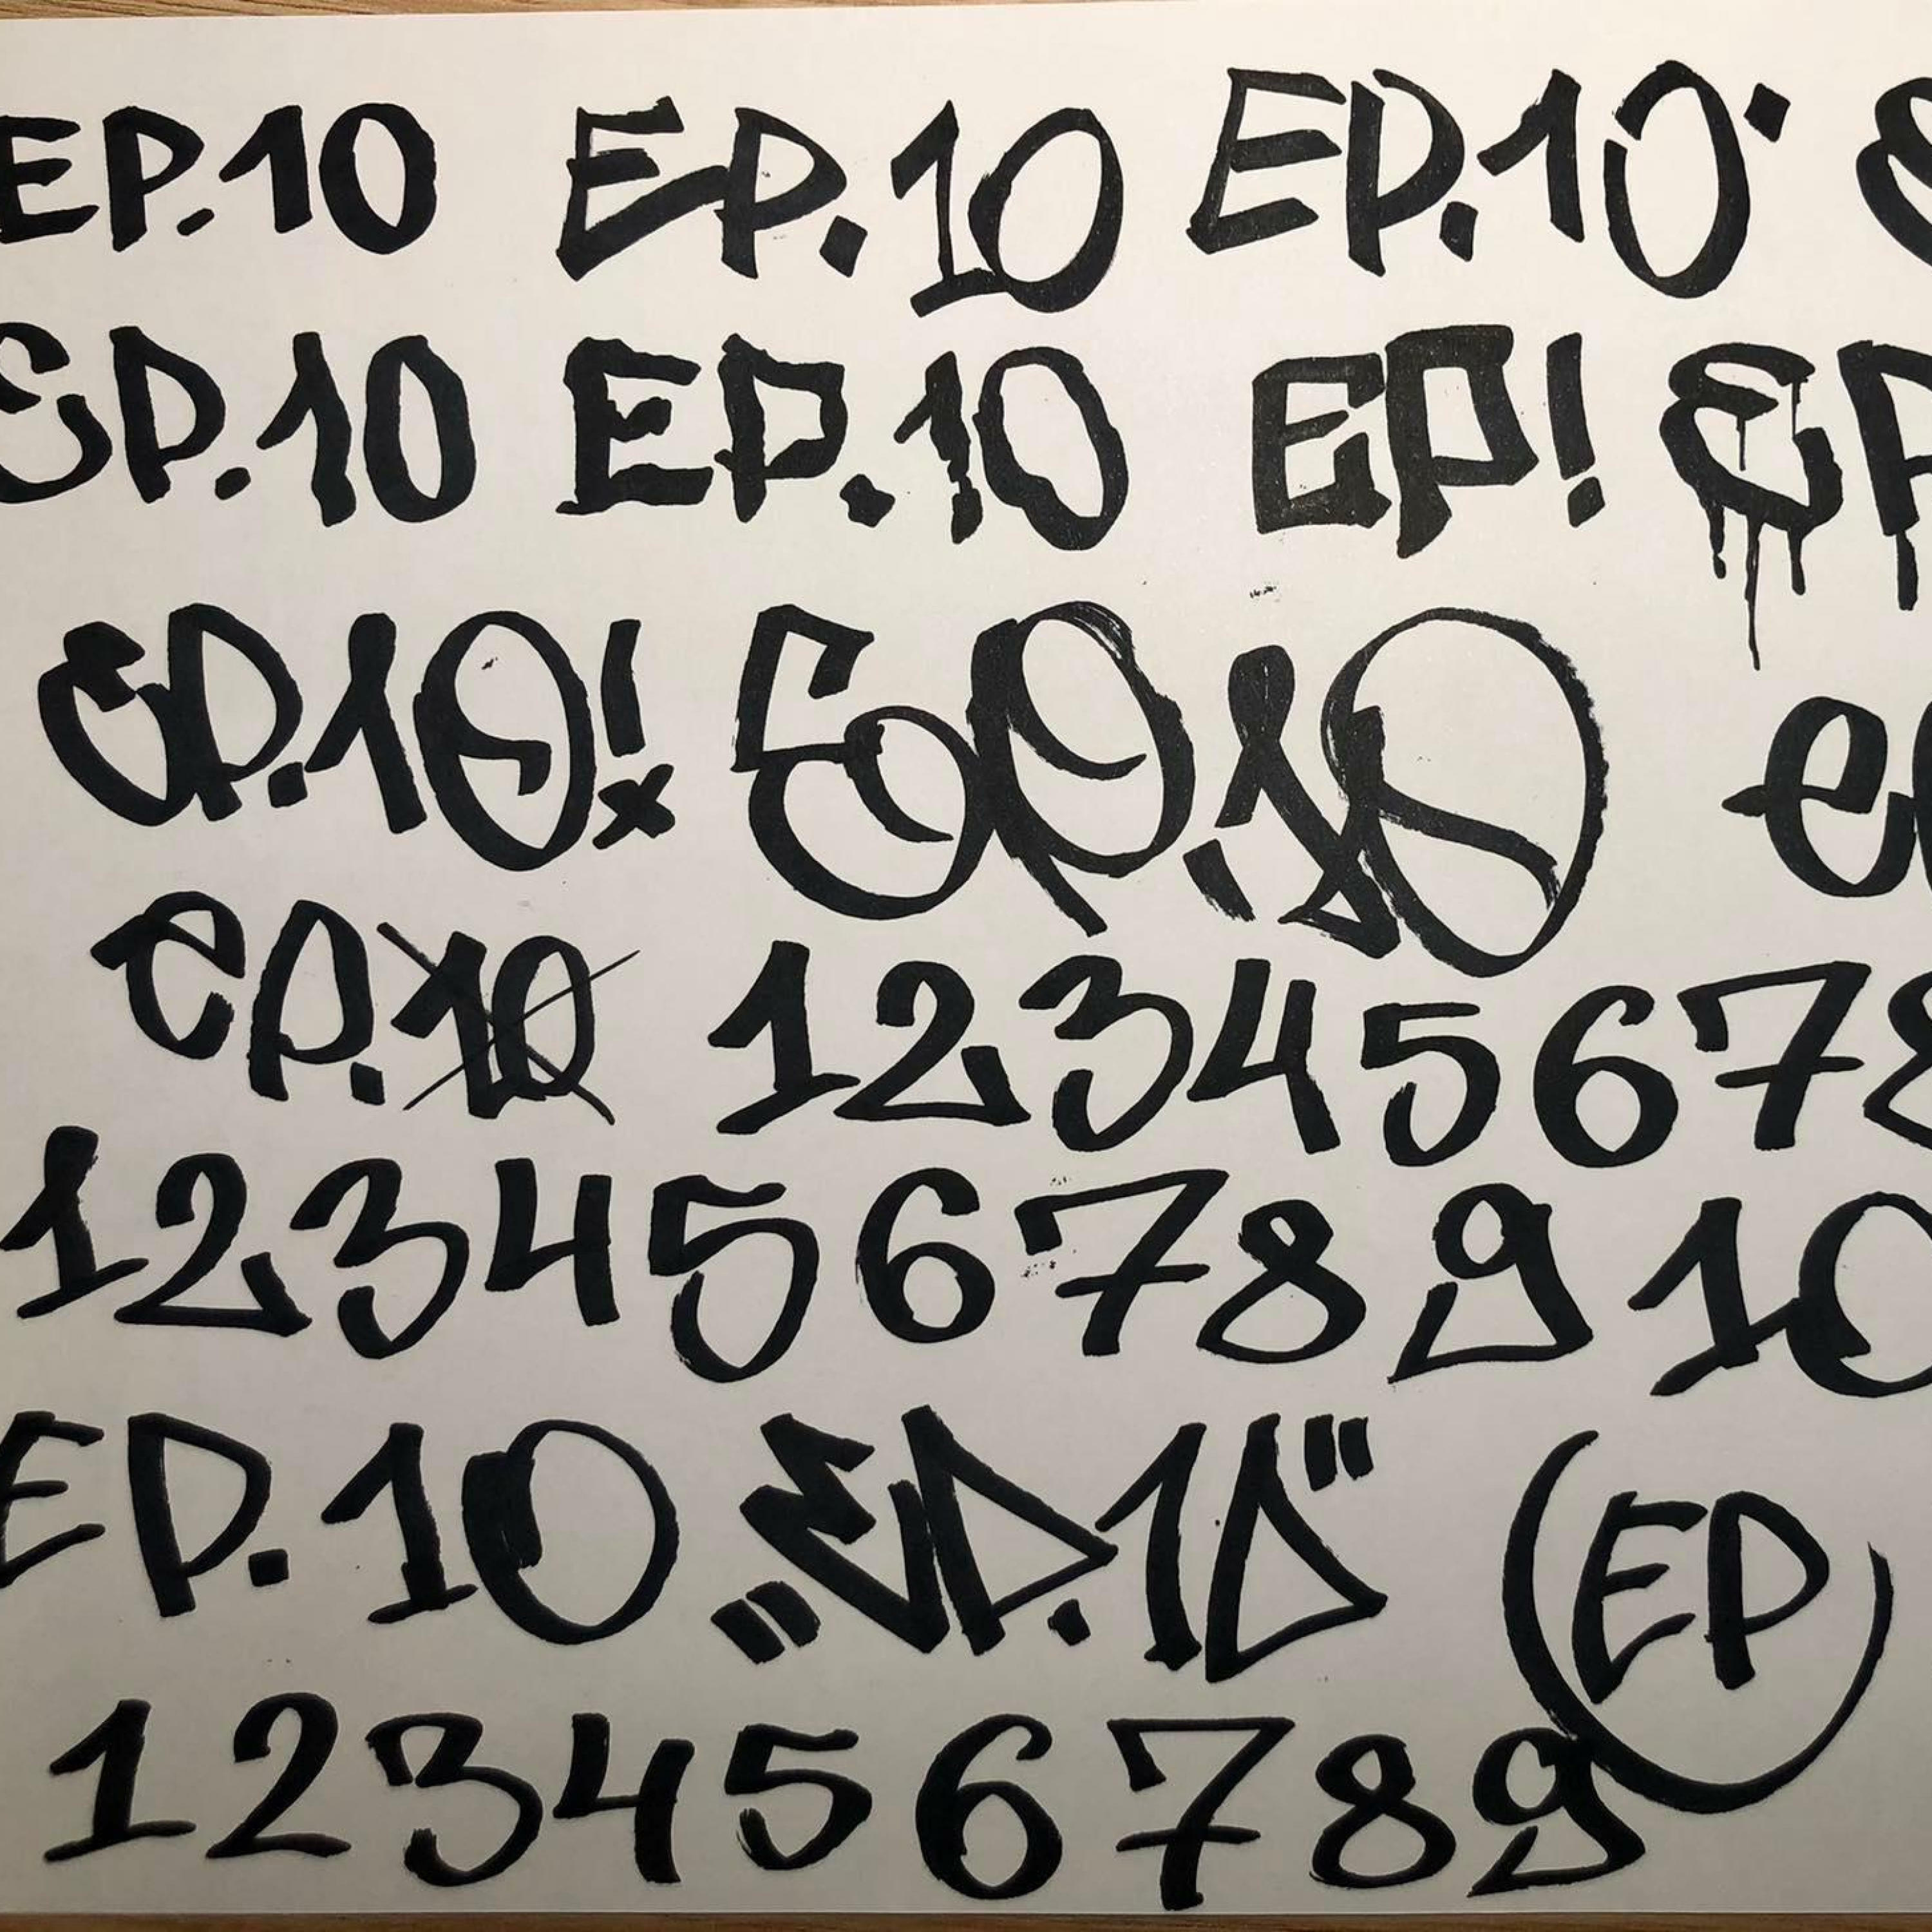 EP.10 EP.10 EP.10
EP.10 EP.10 EP! EP
EP.10! EP.10 e
eP.10 1 2 3 4 5 6 7 8
1 2 3 4 5 6 7 8 9 10
EP. 10 „EP.10" (EP)
1 2 3 4 5 6 7 8 9